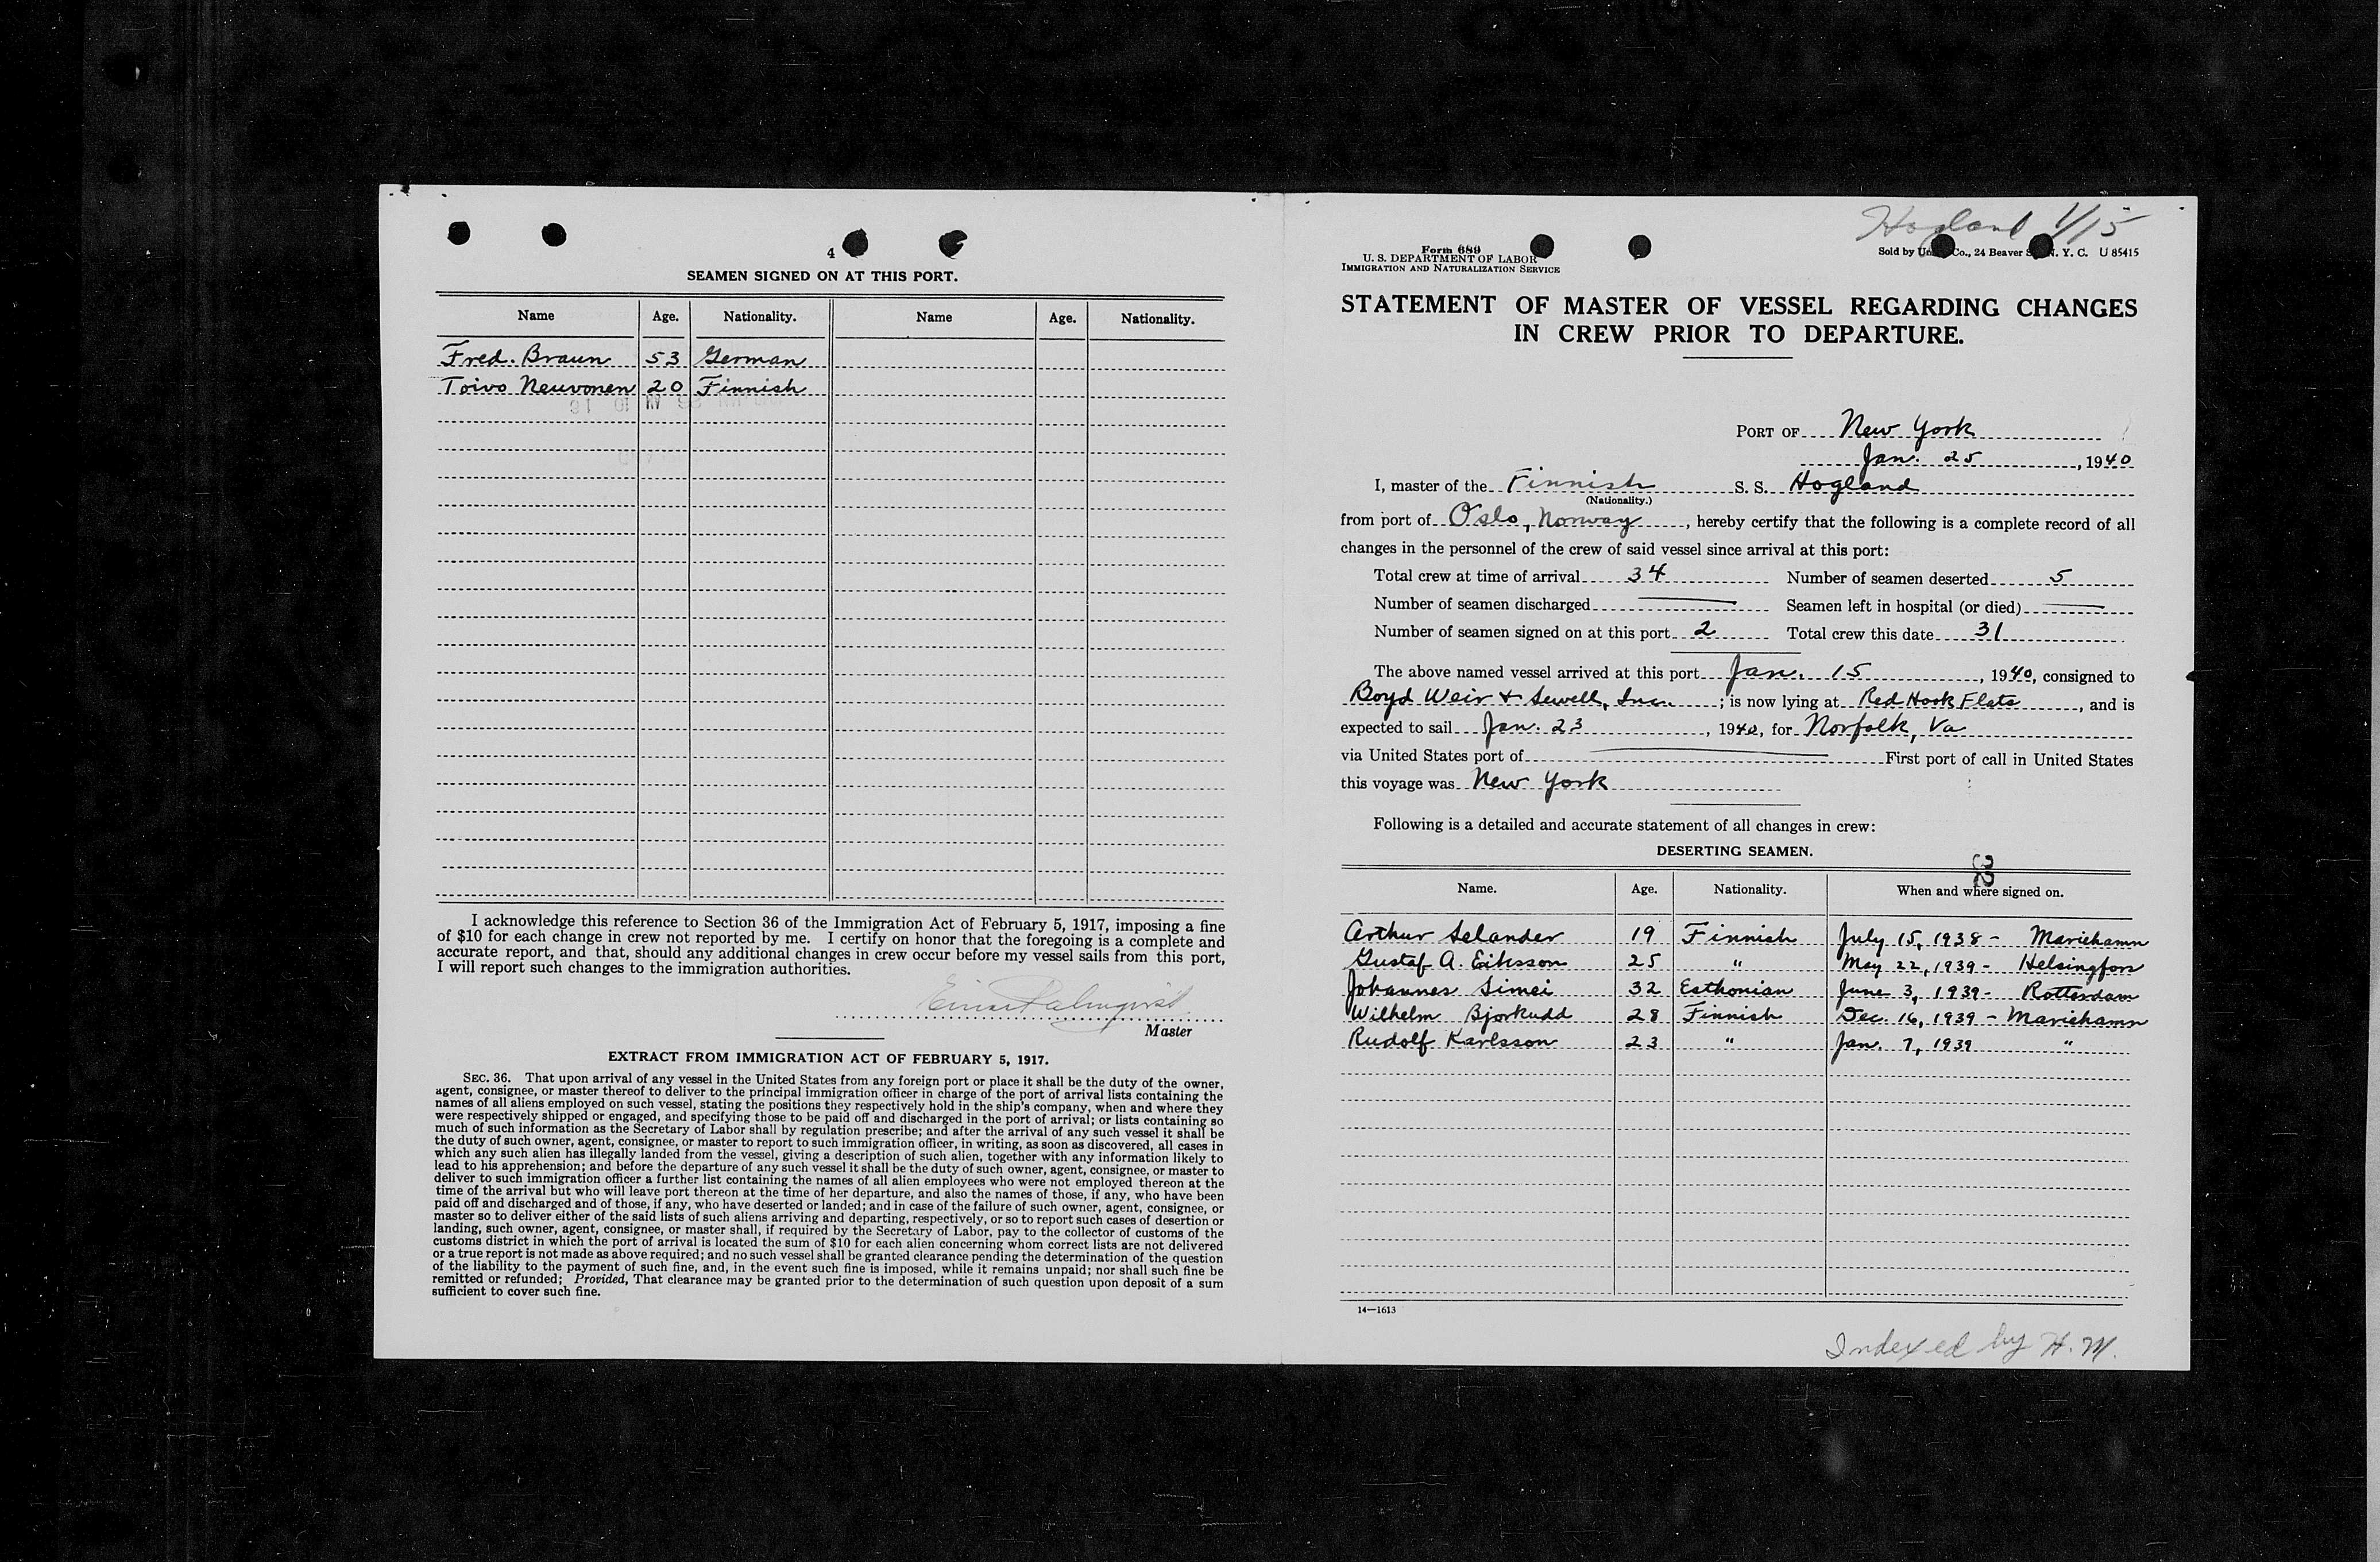 4
SEAMEN SIGNED ON AT THIS PORT.
Name Age. Nationality. Name Age. Nationality.
Fred. Braun 53 German
Toivo Neuvonen 20 Finnish
I acknowledge this reference to Section 36 of the Immigration Act of February 5, 1917, imposing a fine
of $10 for each change in crew not reported by me. I certify on honor that the foregoing is a complete and
accurate report, and that, should any additional changes in crew occur before my vessel sails from this port,
I will report such changes to the immigration authorities.
Einar Palmqvist
Master
EXTRACT FROM IMMIGRATION ACT OF FEBRUARY 5, 1917.
SEC. 36. That upon arrival of any vessel in the United States from any foreign port or place it shall be the duty of the owner,
agent, consignee, or master thereof to deliver to the principal immigration officer in charge of the port of arrival lists containing the
names of all aliens employed on such vessel, stating the positions they respectively hold in the ship's company, when and where they
were respectively shipped or engaged, and specifying those to be paid off and discharged in the port of arrival; or lists containing so
much of such information as the Secretary of Labor shall by regulation prescribe; and after the arrival of any such vessel it shall be
the duty of such owner, agent, consignee, or master to report to such immigration officer, in writing, as soon as discovered, all cases in
which any such alien has illegally landed from the vessel, giving a description of such alien, together with any information likely to
lead to his apprehension; and before the departure of any such vessel it shall be the duty of such owner, agent, consignee, or master to
deliver to such immigration officer a further list containing the names of all alien employees who were not employed thereon at the
time of the arrival but who will leave port thereon at the time of her departure, and also the names of those, if any, who have been
paid off and discharged and of those, if any, who have deserted or landed; and in case of the failure of such owner, agent, consignee, or
master so to deliver either of the said lists of such aliens arriving and departing, respectively, or so to report such cases of desertion or
landing, such owner, agent, consignee, or master shall, if required by the Secretary of Labor, pay to the collector of customs of the
customs district in which the port of arrival is located the sum of $10 for each alien concerning whom correct lists are not delivered
or a true report is not made as above required; and no such vessel shall be granted clearance pending the determination of the question
of the liability to the payment of such fine, and, in the event such fine is imposed, while it remains unpaid; nor shall such fine be
remitted or refunded; Provided, That clearance may be granted prior to the determination of such question upon deposit of a sum
sufficient to cover such fine.
Hogland 1/15
Form 689
U. S. DEPARTMENT OF LABOR
IMMIGRATION AND NATURALIZATION SERVICE
Sold by Co., 24 Beaver N. Y. C. U 85415
STATEMENT OF MASTER OF VESSEL REGARDING CHANGES
IN CREW PRIOR TO DEPARTURE.
PORT OF New York
Jan. 25, 1940
I, master of the Finnish S. S. Hogland
(Nationality.)
from port of Oslo, Norway, hereby certify that the following is a complete record of all
changes in the personnel of the crew of said vessel since arrival at this port:
Total crew at time of arrival 34 Number of seamen deserted 5
Number of seamen discharged — Seamen left in hospital (or died) —
Number of seamen signed on at this port 2 Total crew this date 31
The above named vessel arrived at this port Jan. 15, 1940, consigned to
Boyd Weir & Sewell, Inc.; is now lying at Red Hook Flats, and is
expected to sail Jan. 23, 1940, for Norfolk, Va
via United States port of — First port of call in United States
this voyage was New York
Following is a detailed and accurate statement of all changes in crew:
DESERTING SEAMEN.
32
Name. Age. Nationality. When and where signed on.
Arthur Selander 19 Finnish July 15, 1938 - Mariehamn
Gustaf A. Eiksson 25 " May 22, 1939 - Helsingfors
Johannes Simei 32 Esthonian June 3, 1939 - Rotterdam
Wilhelm Bjorkudd 28 Finnish Dec. 16, 1939 - Mariehamn
Rudolf Karlsson 23 " Jan. 7, 1939 "
14—1613
Indexed by H. M.